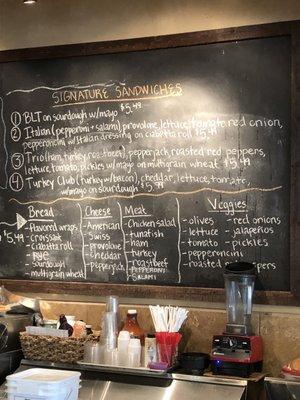 SIGNATURE SANDWICHES
① BLT on sourdough w/mayo $5.49
② Italian (pepperoni + salami) provolone, lettuce, tomato red onion,
pepperoncini w/Italian dressing on ciabatta roll $5.49
③ Trio (ham, turkey, roast beef), pepperjack roasted red peppers,
lettuce, tomato, pickles w/mayo on multigrain wheat $5.49
④ Turkey Club (turkey w/bacon), cheddar, lettuce, tomato,
w/mayo on sourdough $5.49
Bread
$5.49
- Flavored wraps
- croissant
- ciabatta roll
- rye
- sourdough
- multigrain wheat
Cheese
- American
- Swiss
- provolone
- cheddar
- pepperjack
Meat
- Chicken salad
- tunafish
- ham
- turkey
- roast beef
- PEPPERONI
- SALAMI
Veggies
- olives
- lettuce
- tomato
- pepperoncini
- roasted peppers
- red onions
- jalapeños
- pickles